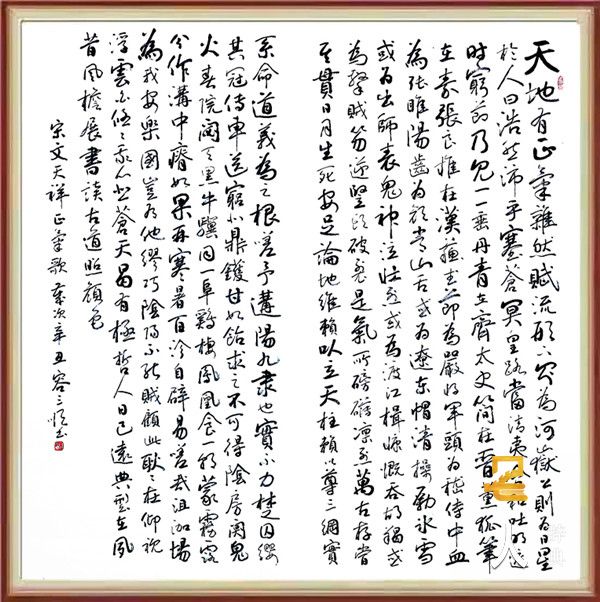 天地有正氣雜然賦流形下則為河嶽上則為日星
於人曰浩然沛乎塞蒼冥皇路當清夷含和吐明庭
時窮節乃見一一垂丹青在齊太史簡在晉董狐筆
在秦張良椎在漢蘇武節為嚴將軍頭為嵇侍中血
為張睢陽齒為顏常山舌或為遼東帽清操勵冰雪
或為出師表鬼神泣壯烈或為渡江楫慷慨吞胡羯或
為擊賊笏逆豎頭破裂是氣所磅礴凜烈萬古存當
其貫日月生死安足論地維賴以立天柱賴以尊三綱實
系命道義為之根嗟予遘陽九隸也實不力楚囚纓
其冠傳車送窮北鼎鑊甘如飴求之不可得陰房闃鬼
火春院閟天黑牛驥同一阜雞棲鳳凰食一朝蒙霧露
分作溝中瘠如果再寒暑百沴自辟易嗟哉沮洳場
為我安樂國豈有他繆巧陰陽不能賊顧此耿耿在仰視
浮雲白悠悠我心悲蒼天曷有極哲人日已遠典型在夙
昔風檐展書讀古道照顏色
宋文天祥正氣歌歲次辛丑容三悅書